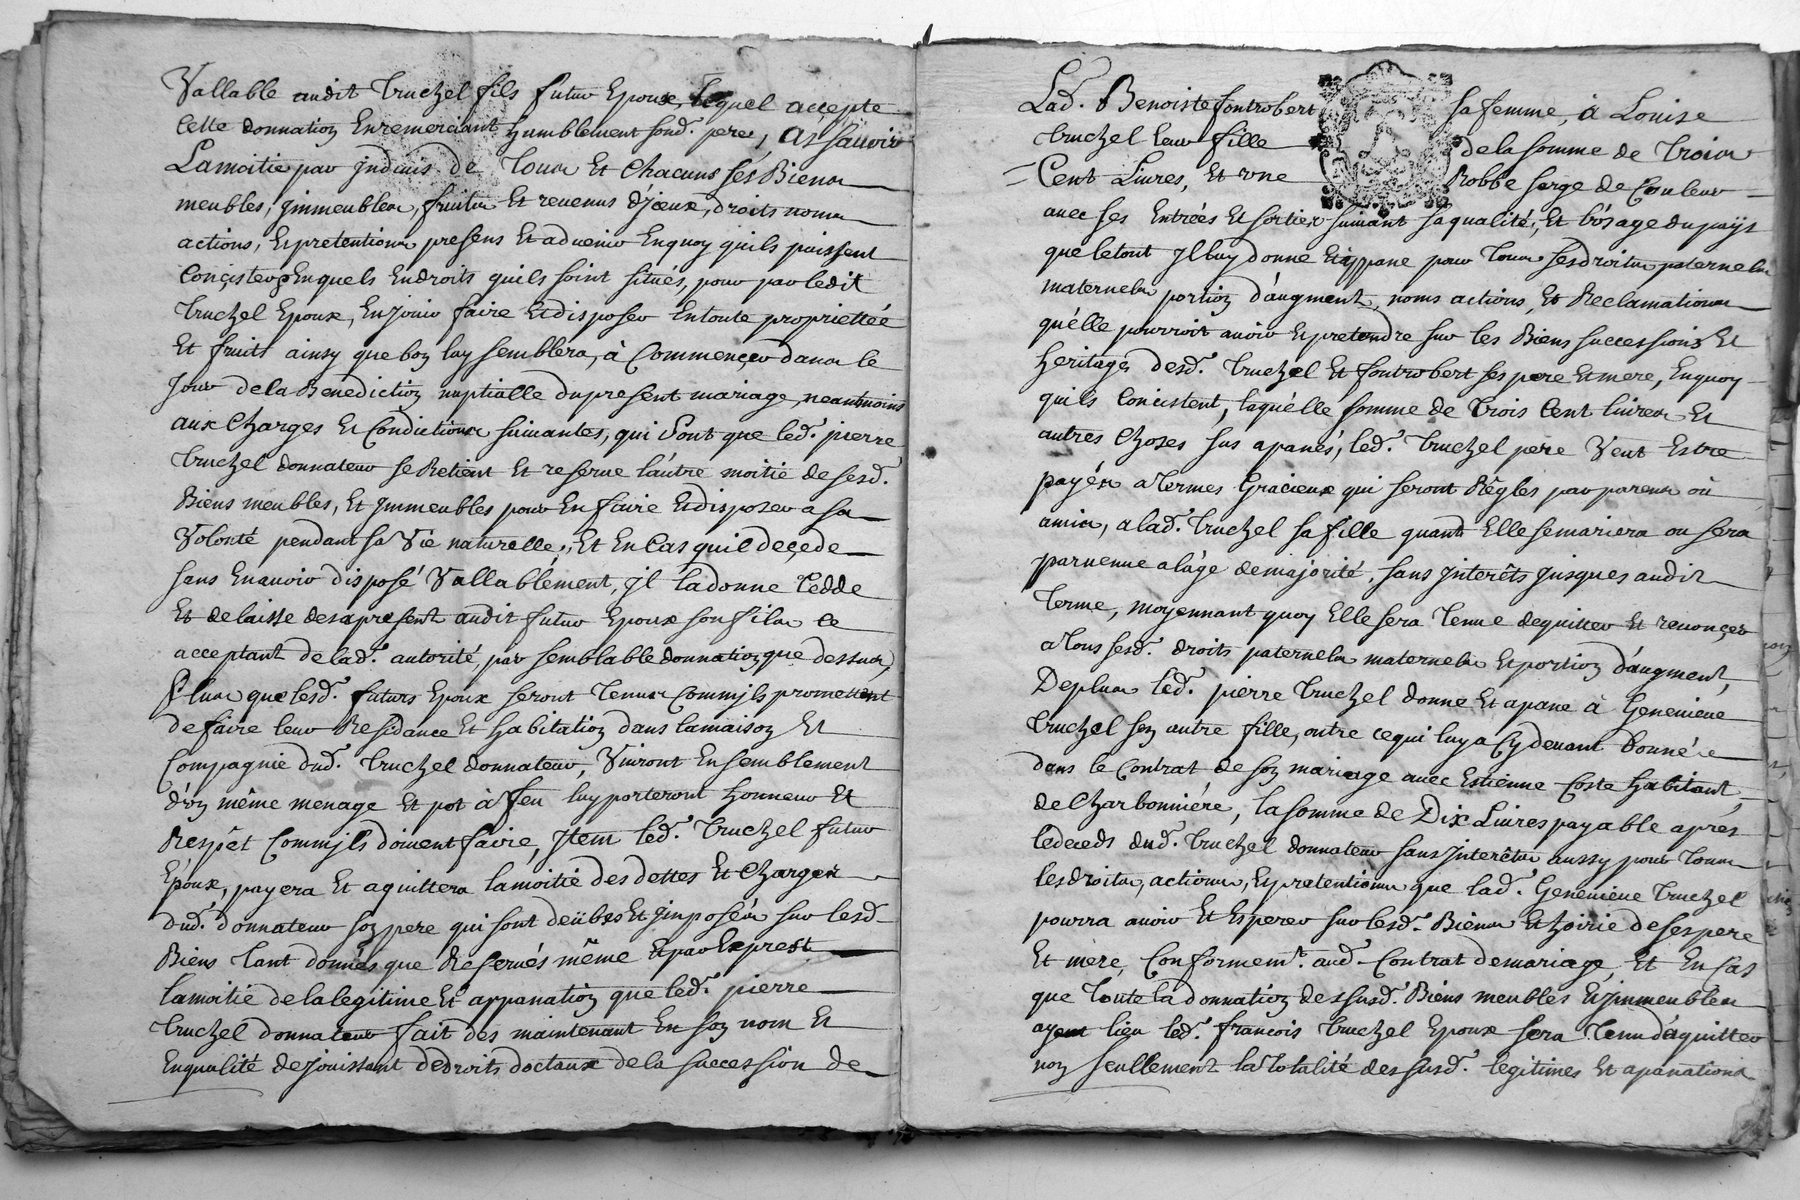 Vallable audit Truchel fils futur Epoux, lequel accepte
Cette donnation En remerciant humblement sond. pere, Assavoir
La moitié par Indivis de Tous Et Chacuns ses Biens
meubles, Immeubles, fruits Et revenus d'jceux, droits noms
actions, Et pretentions presens Et advenir En quoy quils puissent
Concister, & En quels Endroits quils soint situés, pour par ledit
Truchel Epoux, En jouir faire Et disposer En toute propriettée
Et fruits ainsy que bon luy semblera, à Commencer dans le
Jour de la Benediction nuptialle du present mariage, neantmoins
aux Charges Et Conditions suivantes, qui sont que led. pierre
Truchel donnateur se Retient Et reserve l'autre moitié de sesd.
Biens meubles, Et Immeubles pour En faire Et disposer a sa
Volonté pendant sa Vie naturelle, Et En Cas quil deçede
sans En avoir disposé Vallablement, Il la donne Cedde
Et delaisse des apresent audit futur Epoux son fils le
acceptant de lad. autorité, par semblable donnation que dessus,
Plus que lesd. futurs Epoux seront Tenus Commjls promettent
de faire leur Residance Et habitation dans la maison Et
Compagnie dud. Truchel donnateur, Vivront Ensemblement
d'un même menage Et pot à feu luy porteront honneur Et
Respêt Commjls doivent faire, Jtem led. Truchel futur
Epoux, payera Et aquittera la moitié des dettes Et Charges
dud. donnateur son pere qui sont deübes Et Jmposés sur lesd
Biens Tant donnés que Reservés même Et par Exprest
la moitié de la legitime Et appanation que led. pierre
Truchel donnateur fait dés maintenant En son nom Et
En qualité de jouissant de droits doctaux de la succession de
Lad. Benoiste fontrobert sa femme, à Louise
Truchel leur fille de la somme de Trois
Cent Livres, Et vne Robbe serge de Couleur
avec ses Entrées Et sorties suivant sa qualité, Et l'vsage du paÿs
que le tout Jl luy donne Et appane pour Tous ses droits paternels
maternels portion d'augment, noms actions, Et Reclamations
qu'elle pourroit avoir Et pretendre sur les Biens successions Et
heritages desd. Truchel Et fontrobert ses pere Et mere, En quoy
quils Concistent, laquelle somme de Trois Cent livres Et
autres Choses sus apanés, led. Truchel pere Veut Estre
payés a Termes Gracieux qui seront Règles par parens où
amis, a lad. Truchel sa fille quand Elle se mariera ou sera
parvenue a lâge de majorité, sans Jnterêts Jusques audit
Terme, moyennant quoy Elle sera Tenue de quitter Et renonçer
a Tous sesd. droits paternels maternels Et portion d'augment,
De plus led. pierre Truchel donne Et apane à Genevieve
Truchel son autre fille, outre ce qui luy a Cy devant donnée
dans le Contrat de son mariage avec Estienne Coste habitant
de Charbonniére, la somme de Dix Livres payable aprés
le deceds dud. Truchel donnateur sans Jnterêts aussy pour Tous
les droits, actions, Et pretentions que lad. Genevieve Truchel
pourra avoir Et Esperer sur lesd. Biens Et hoirie de ses pere
Et mere, Conformemt. aud. Contrat de mariage, Et En Cas
que Toute la donnation des susd. Biens meubles Et Jmmeubles
ayent lieu led. françois Truchel Epoux sera Tenu d'aquitter
non seullement la Totalité des susd. legitimes Et apanations